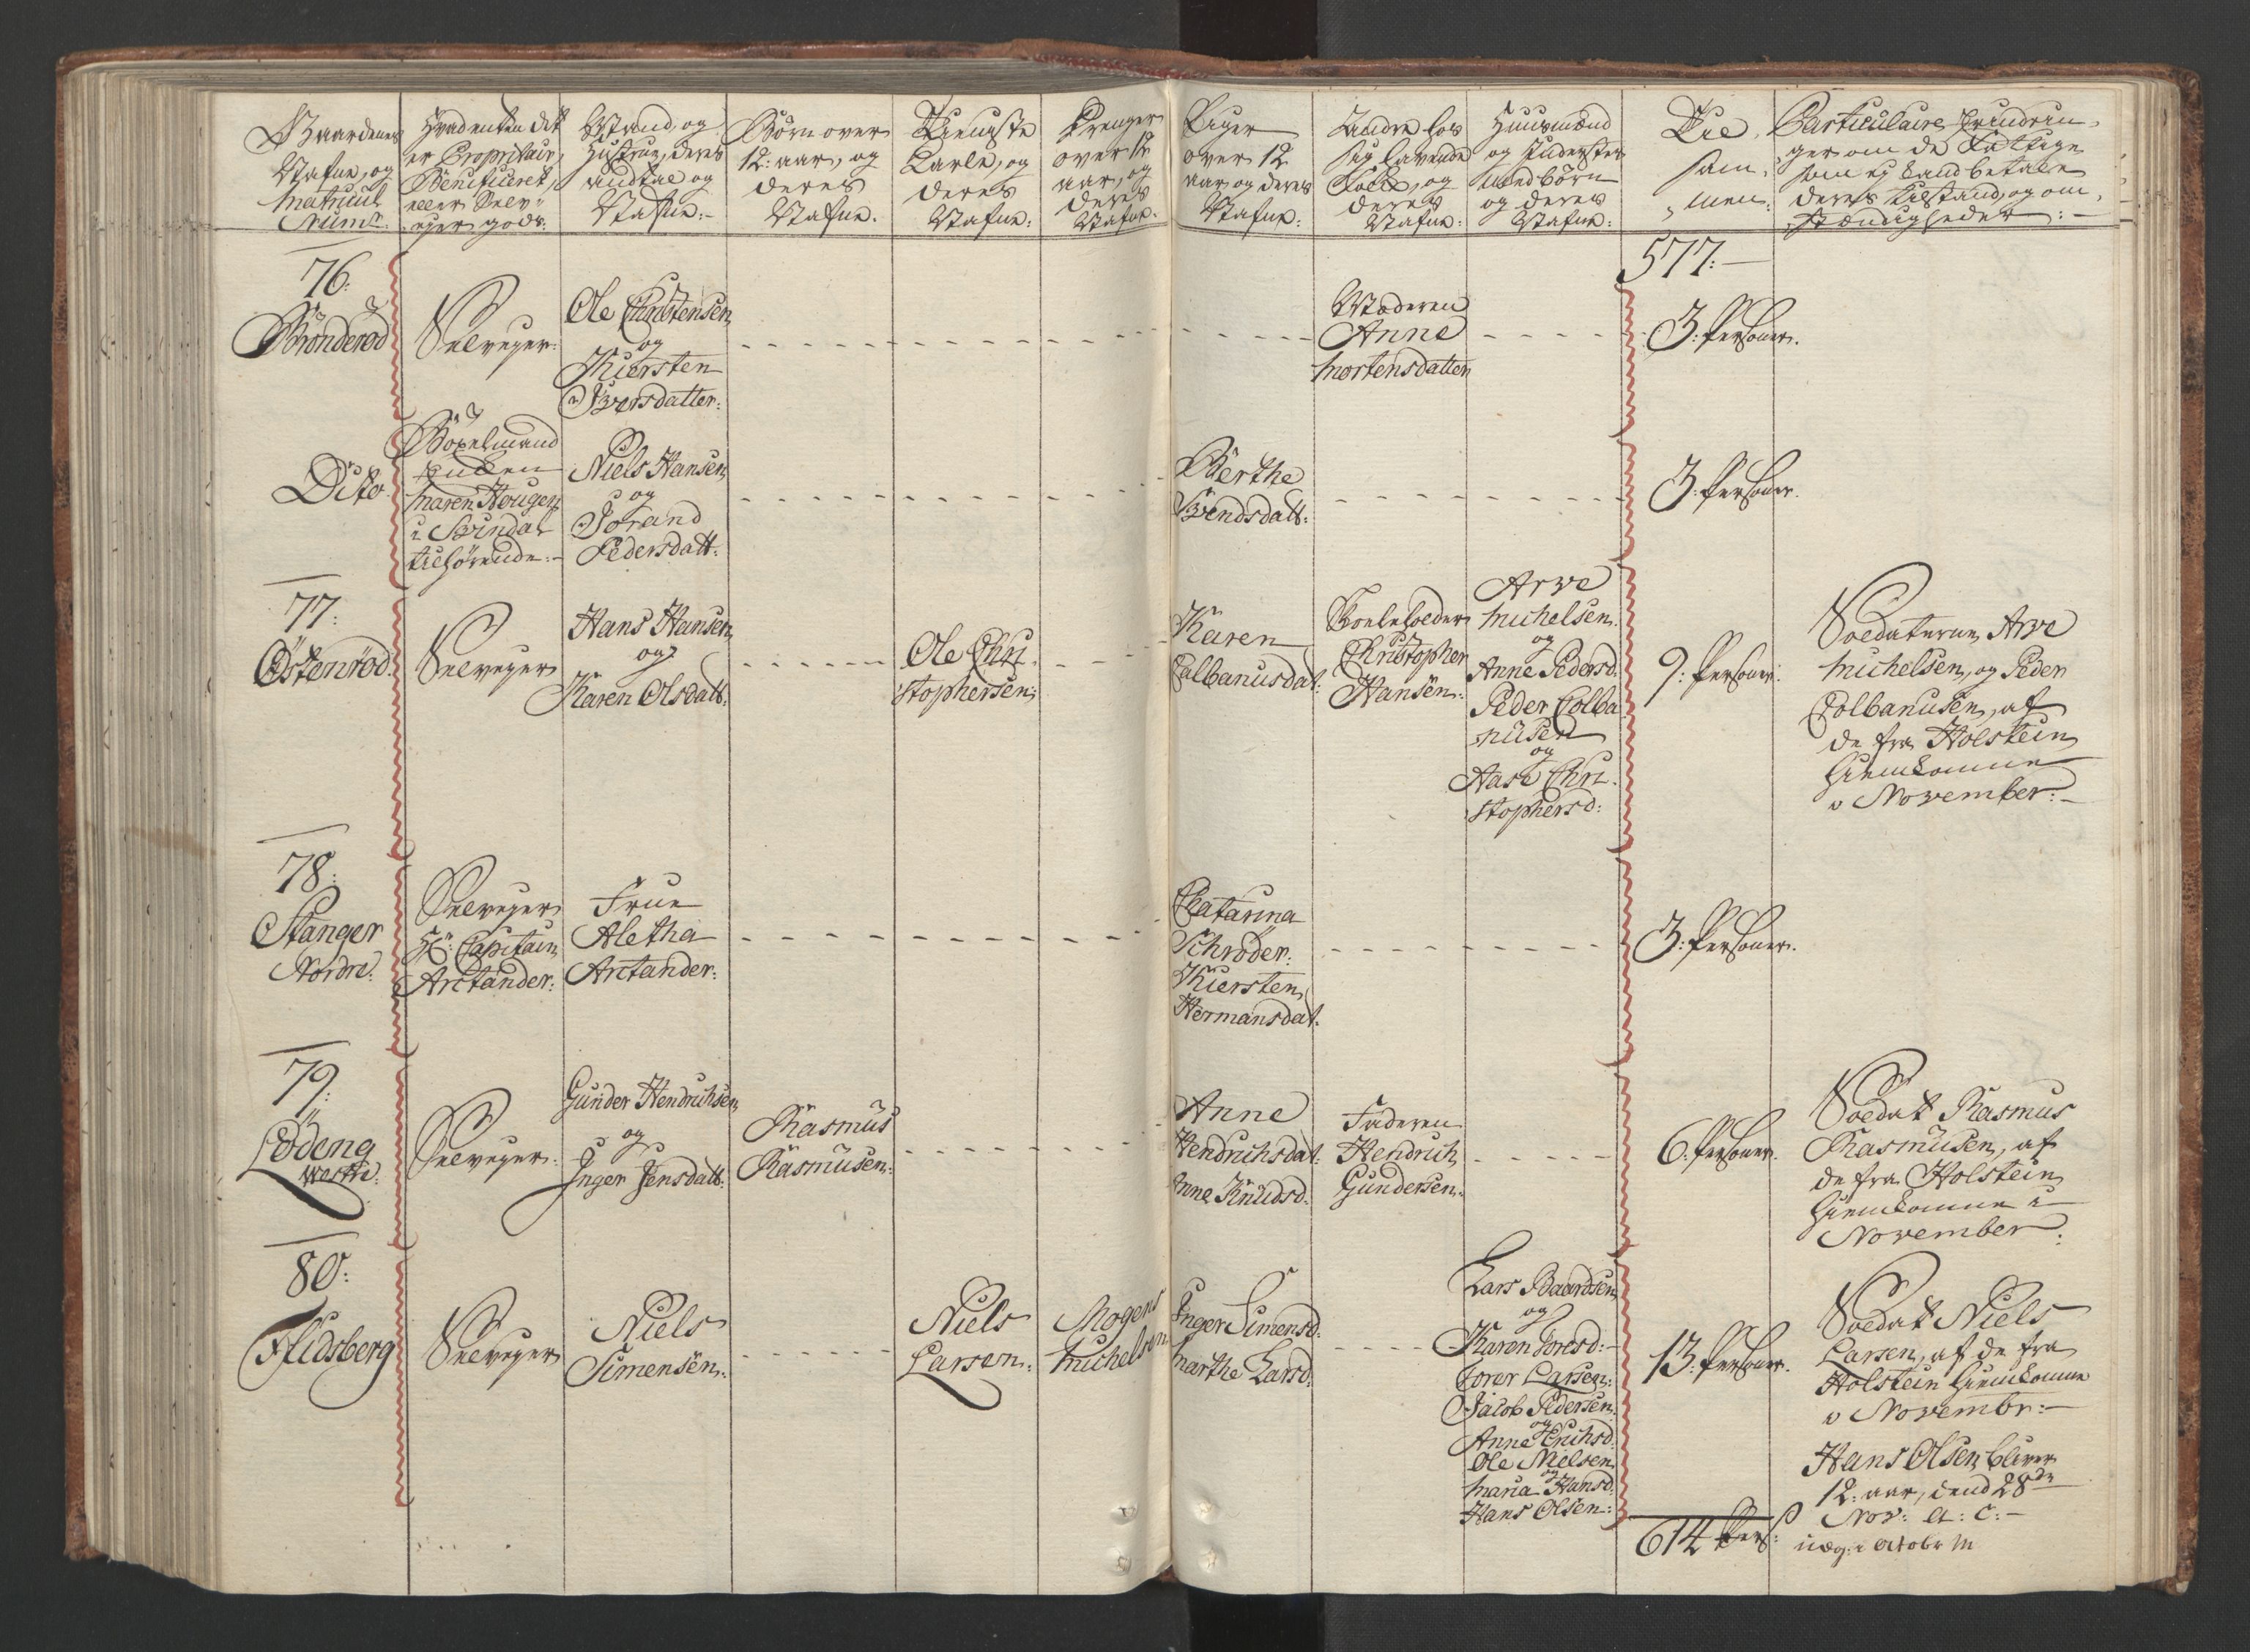 Gaardenes
Nafne, og
Matricul
Num:
Hvad enten det
er Propritair,
Beneficeret,
eller Selv-
eyer gods:
Mand, og
Hustrue, deres
andtal og
Nafne:
Børn over
12: aar, og
deres
Nafne.
Tieneste
Karle, og
deres
Nafne:
Drenger
over 12
aar, og
deres
Nafne:
Piger
over 12
aar og deres
Nafne:
Andre hos
sig havende
Folk, og
deres
Nafne:
Huusmænd
og Inderster
med børn
og deres
Nafne:
Til
sam-
men:
Particulaire Erindrin-
ger om de fattige
som ej kand betale
deres tilstand, og om-
stændigheder:
577:
76:
Bönderød
Selveyer:
Ole Christensen
og
Kiersten
Iversdatter:
Moderen
Anne
Mortensdatter
3: Personer.
Dito
Bøxelmand
under
Maren Hougen
i Svindal
tilhørende:
Niels Hansen
og
Jorand
Pedersdatt:
Berthe
Svendsdatt:
3: Personer.
77:
Östenröd
Selveyer
Hans Hansen
og
Karen Olsdatt:
Ole Chri-
stophersen:
Karen
Colbanusdat:
Skoeleholder
Christopher
Hansen:
Arve
Michelsen
og
Anne Pedersd:
Peder Colba-
nusen
og
Aase Chri-
stophersd:
9: Personer:
Soldaterne Arve
Michelsen, og Peder
Colbanusen, af
de fra Holstein
hiemkomne
i November:
78:
Stanger
Nordre:
Selveyer
Hr: Capitain
Arctander:
Frue
Aletha
Arctander:
Catarina
Schrøder:
Kiersten
Hermansdat:
3: Personer.
79:
Lödeng
Westre:
Selveyer:
Gunder Hendrichsen
og
Inger Jensdatt:
Rasmus
Rasmusen:
Anne
Hendrichsdat:
Anne Knudsd:
Faderen
Hendrich
Gundersen:
6: Personer.
Soldat Rasmus
Rasmusen, af
de fra Holstein
hiemkomne i
November:
80:
Flidsberg
Selveyer
Niels
Simensen:
Niels
Larsen:
Mogens
Michelsen
Inger Simensd:
Marthe Larsd:
Lars Baardsen
og
Karen Toresd:
Torer Larsen:
Jacob Pedersen
og
Anne Erichsd:
Ole Nielsen
og
Maria Hansd:
Hans Olsen:
13: Personer.
Soldat Niels
Larsen, af de fra
Holstein hiemkomne
i Novembr:
Hans Olsen bliver
12: aar, dend 28de
Nov: a: c:
614 Pers: